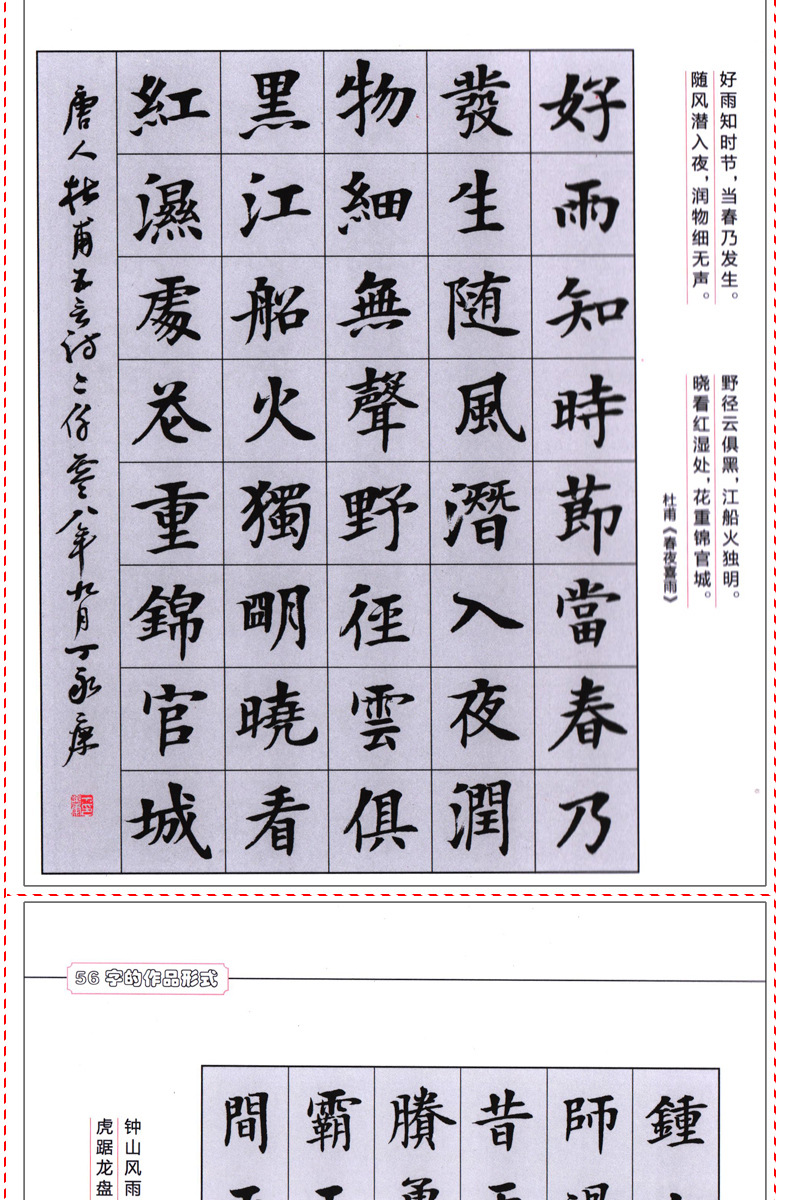 好雨知时节，当春乃发生。
随风潜入夜，润物细无声。
野径云俱黑，江船火独明。
晓看红湿处，花重锦官城。
杜甫《春夜喜雨》
好雨知時節當春乃
發生随風潛入夜潤
物細無聲野徑雲俱
黑江船火獨明曉看
紅濕處花重錦官城
唐人杜甫五言诗 零八年九月丁永康
56 字的作品形式
鍾
師
昔
賸
霸
間
钟山风雨
虎踞龙盘